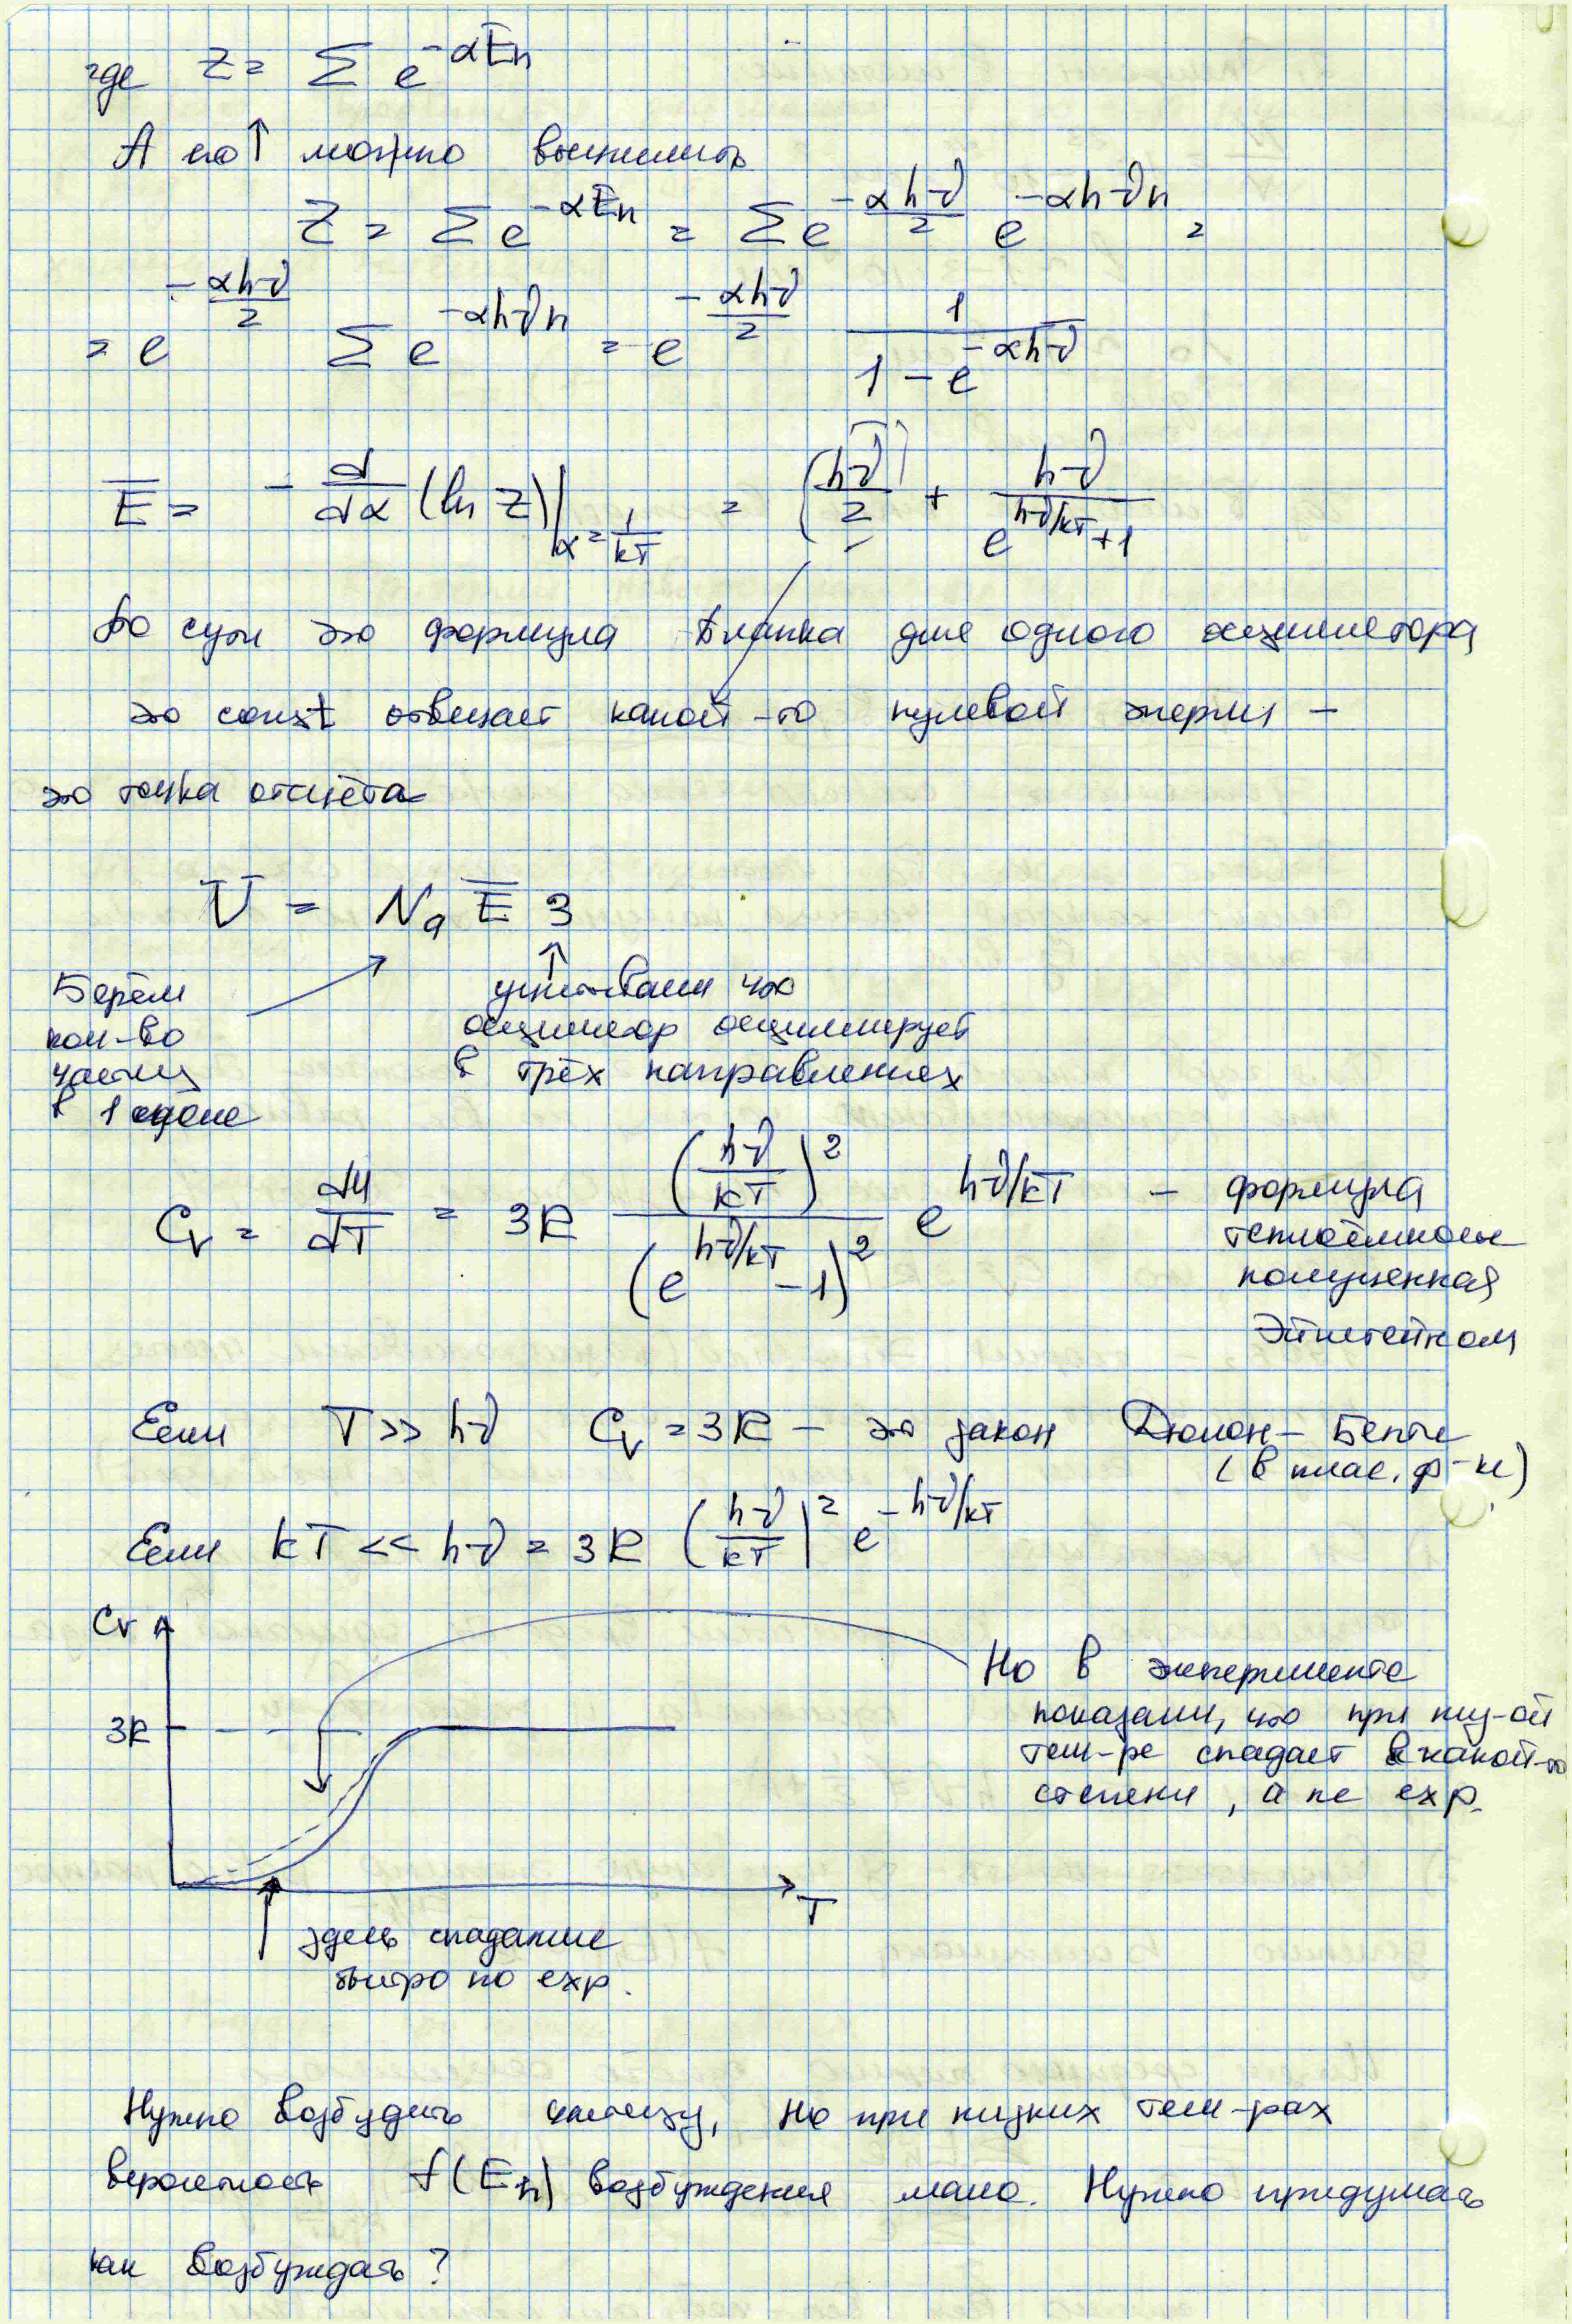 где Z = Σ e^{-αEn}
А по↑ можно вычислить
Z = Σ e^{-αEn} = Σ e^{-αhν/2} e^{-αhνn} =
= e^{-αhν/2} Σ e^{-αhνn} = e^{-αhν/2} 1/(1 - e^{-αhν})
Ē = - d/dα (ln Z)|_{α = 1/kT} = (hν/2) + hν/(e^{hν/kT} + 1)
По сути это формула Планка для одного осциллятора
это const отвечает какой-то нулевой энергии -
это точка отсчёта
U = Na Ē 3
Берём
кол-во
частиц
в 1 моле
учитываем что
осциллятор осциллирует
в трёх направлениях
Cv = dU/dT = 3R (hν/kT)² / (e^{hν/kT} - 1)² e^{hν/kT} - формула
теплоёмкости
полученная
Эйнштейном
Если T >> hν Cv = 3R - это закон Дюлон - Пепти
(в клас. ф-ке)
Если kT << hν = 3R (hν/kT)² e^{-hν/kT}
Cv
3R
Но в эксперименте
показали, что при низ-ой
тем-ре спадает в какой-то
степени, а не exp.
T
здесь спадание
быстро по exp.
Нужно возбудить частицу, но при низких тем-рах
вероятность f(En) возбуждения мало. Нужно придумать
как возбуждать?